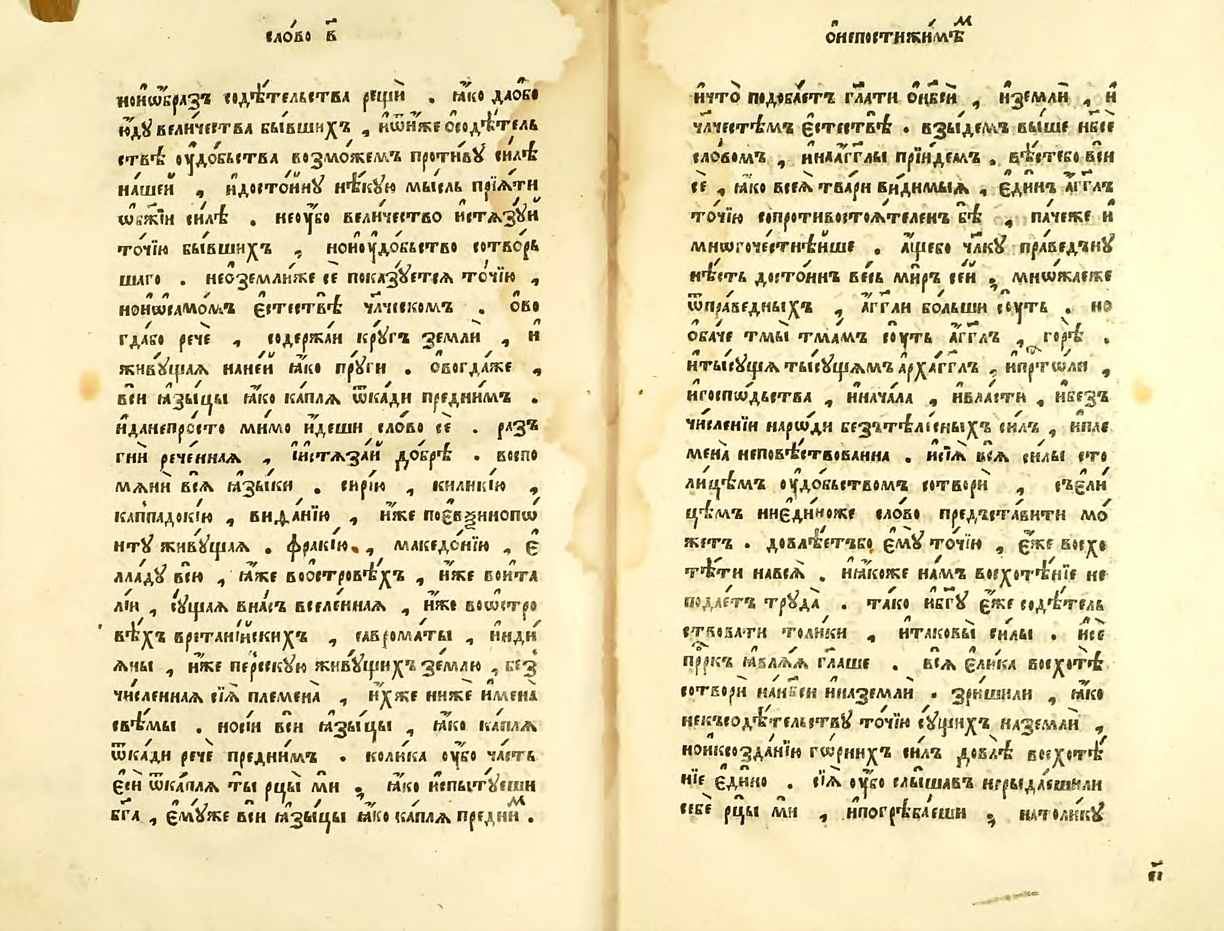 сло́во в҃
но́иѡ҆́браꙁъ содѣ́тельства рещѝ . ꙗ҆́ко даѿбо
ю҆́дꙋ вели́чества бы́вшихъ , и҆ѿни́же ѡ҆содѣ́тель
ствѣ ᲂу҆до́бьства возмо́жемъ проти́вꙋ си́лѣ
на́шей , и҆досто́йнꙋ нѣ́кꙋю мы́сль прїѧ́ти
ѡ҆бж҃їи си́лѣ . неᲂу҆́бо вели́чество и҆стѧзꙋ́й
то́чїю бы́вшихъ , но́иᲂу҆до́бьство сотво́рь
шаго . неѡ҆землѝже сѐ показꙋ́етсѧ то́чїю ,
но́иѡ҆са́момъ є҆стествѣ̀ чл҃ческомъ . ѻ҆во
гда́бо речѐ , содержа́и крꙋ́гъ землѝ , и҆
живꙋ́щаѧ нане́й ꙗ҆́ко прꙋ́ги . ѻ҆вогда́же ,
всѝ ꙗ҆зы́цы ꙗ҆́ко ка́плѧ ѿка́ди предни́мъ .
и҆дане́просто ми́мо и҆́деши сло́во сѐ . разъ
гнѝ рече́ннаѧ , и҆и҆стѧза́й до́брѣ . воспо
мѧнѝ всѧ̀ ꙗ҆зы́ки . си́рїю , килики́ю ,
каппадокі́ю , виѳа́нїю , и҆̀же поє҆ѵѯинопѡ́
нтꙋ живꙋ́щаѧ . фракі́ю , македо́нїю , є҆
лла́дꙋ всю̀ , ꙗ҆́же воѻ҆́стровѣхъ , и҆̀же вои҆та
лі́и , сꙋ́щаѧ вна́съ вселе́ннаѧ , и҆̀же воѻ҆стро
вѣ́хъ врета́нїйскихъ , савро́маты , и҆нди
ѧ́ны , и҆̀же пе́рсскꙋю живꙋ́щихъ зе́млю , без
чи́сленнаѧ сїѧ̀ племена̀ , и҆́хже нижѐ и҆мена̀
свѣ́мы . носѝи всѝ ꙗ҆зы́цы , ꙗ҆́ко ка́плѧ
ѿка́ди речѐ предни́мъ . коли́ка ᲂу҆́бо ча́сть
є҆сѝ ѿка́плѧ ты̀ рцы́ ми , ꙗ҆́ко и҆спытꙋ́еши
бг҃а , є҆мꙋ́же всѝ ꙗ҆зы́цы ꙗ҆́ко ка́плѧ преднїмъ .
ѡ҆непостижи́мѣмъ
и҆что̀ подоба́етъ гл҃ати ѡ҆нб҃сѝ , и҆землѝ , и҆
чл҃честѣмъ є҆стествѣ̀ . взы́демъ вы́ше нб҃се
сло́вомъ , и҆наа҆́гг҃лы прїи́демъ . вѣ́стебо всѝ
сѐ , ꙗ҆́ко всеѧ̀ тва́ри ви́димыѧ , є҆ди́нъ а҆́гг҃лъ
то́чїю сопротивостоѧ́теленъ бѣ̀ , па́чеже и҆
мно́гочестнѣ́йше . а҆́щебо чл҃кꙋ пра́ведънꙋ
нѣ́сть досто́инъ ве́сь ми́ръ се́й , мно́жаеже
ѿпра́ведныхъ , а҆́гг҃ли бо́льши сꙋть . но
ѻ҆ба́че тмы̀ тма́мъ сᲂуть а҆́гг҃лъ , горѣ̀ .
и҆ты́сꙋщѧ ты́сꙋщѧмъ а҆рха́гг҃лъ , и҆прⷭ҇то́ли ,
и҆госпѡ́дьства , и҆нача́ла , и҆вла́сти , и҆безъ
числе́нїи наро́ди безътѣле́сныхъ си́лъ , и҆пле
мена̀ неповѣ́ствованна . и҆сїѧ̀ всѧ̀ си́лы сто
ли́цѣмъ ᲂу҆до́бьствомъ сотворѝ , съе҆ли́
цѣмъ ниє҆ди́ноже сло́во предъста́вити мо́
жетъ . довлѣ́етъбо є҆мꙋ̀ то́чїю , є҆́же восхо
тѣ́ти навсѧ̀ . и҆ꙗ҆́коже на́мъ восхотѣ́нїе не
пода́етъ трꙋда̀ . та́ко и҆бг҃ꙋ є҆́же содѣ́тель
ствовати толи́ки , и҆таковы̀ си́лы . и҆сѐ
пррⷪ҇къ ꙗ҆влѧ́ѧ гл҃аше . всѧ̀ є҆ли́ка восхотѣ̀
сотворѝ нанб҃сѝ и҆наземлѝ . зри́шили , ꙗ҆́ко
некъсодѣ́тельствꙋ то́чїю сꙋ́щихъ наземлѝ ,
но́иксозда́нїю го́рнихъ си́лъ довлѣ̀ восхотѣ́
нїе є҆ди́но . сїѧ̀ ᲂу҆́бо слы́шавъ нерыда́ешили
себѐ рцы́ ми , и҆погрѣба́еши , натоли́кꙋ
є҃і